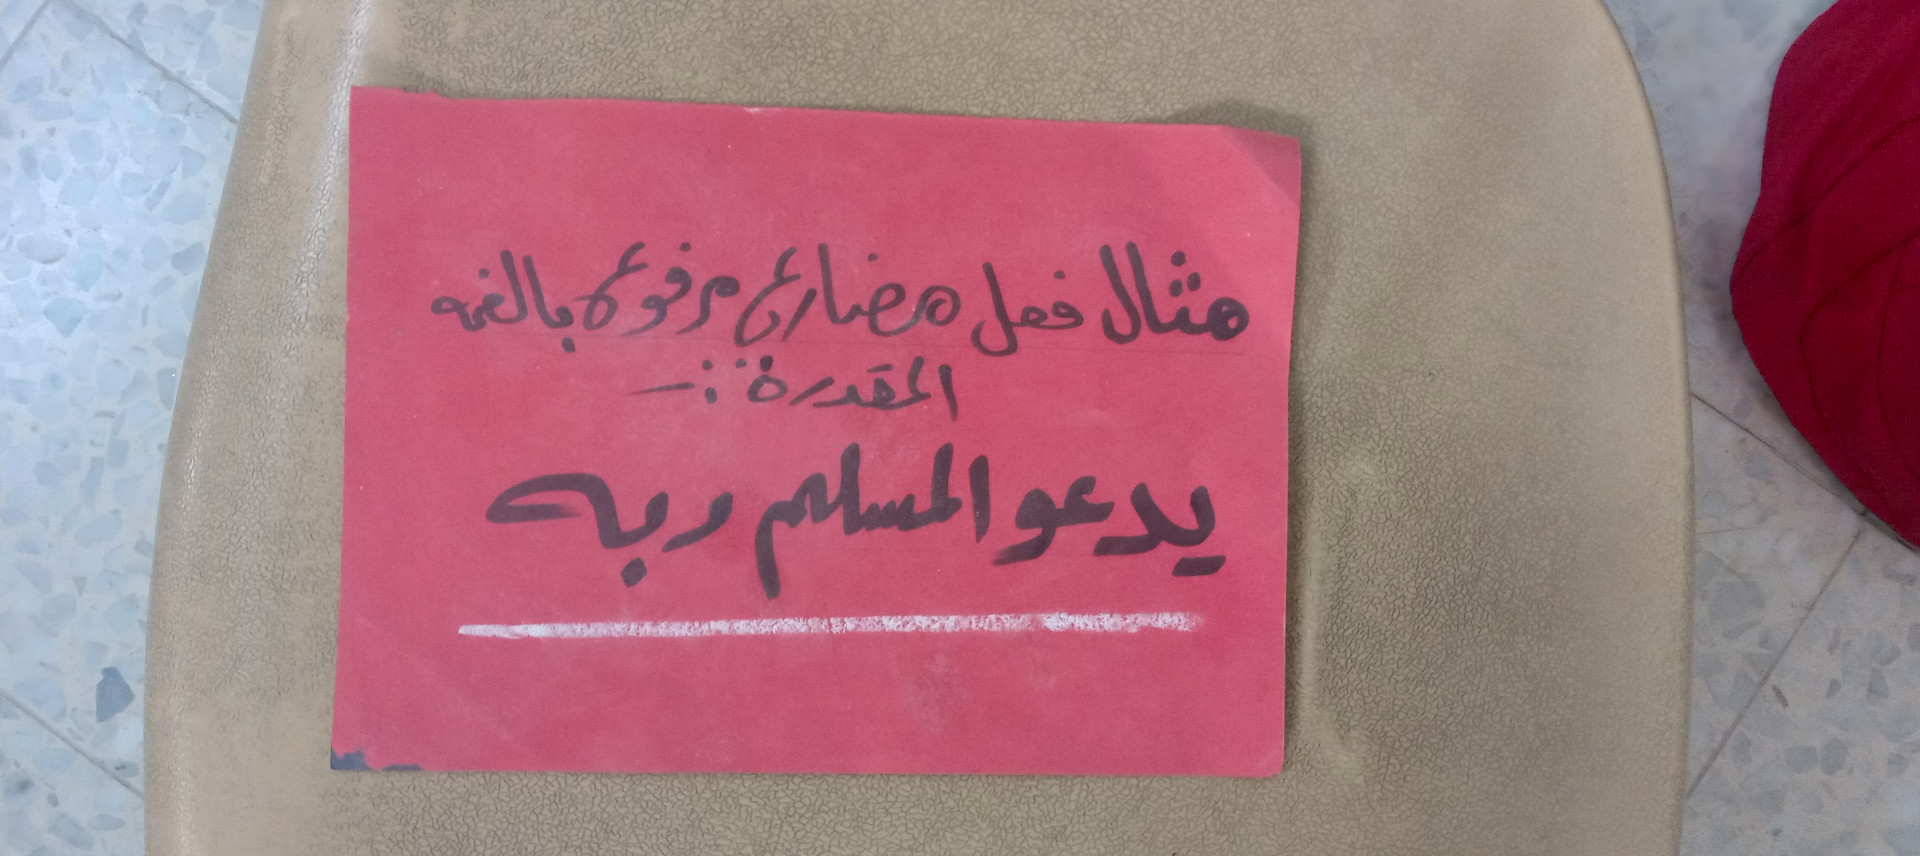 مثال فعل مضارع مرفوع بالضمه
المقدرة :-
يدعو المسلم ربه